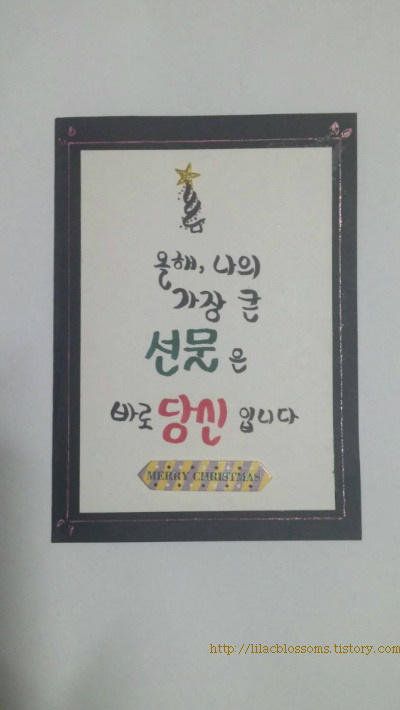 올해, 나의
가장 큰
선물은
바로 당신입니다
MERRY CHRISTMAS
http://lilacblossoms.tistory.com